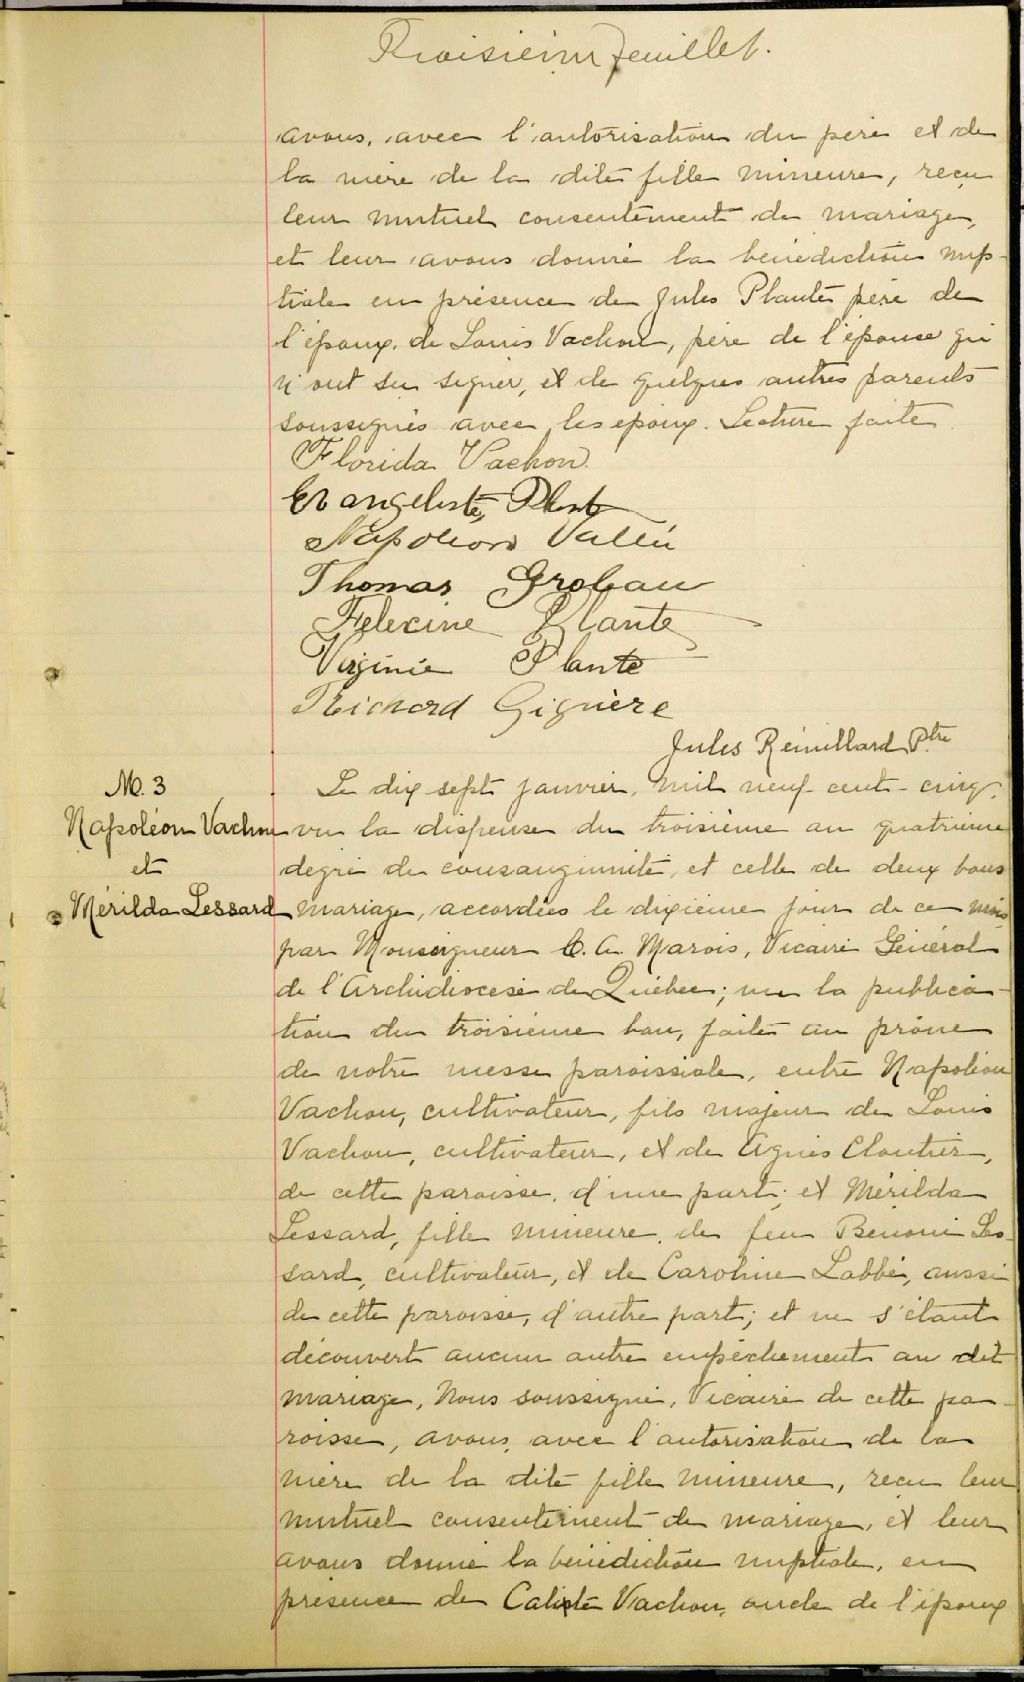 Troisième feuillet.
avons, avec l'autorisation du père et de
la mère de la dite fille mineure, reçu
leur mutuel consentement de mariage,
et leur avons donné la bénédiction nup-
tiale en présence de Jules Plante père de
l'époux, de Louis Vachon, père de l'épouse qui
n'ont su signer, et de quelques autres parents
soussignés avec les époux. Lecture faite.
Florida Vachon
Evangeliste Plante
Napoleon Vallée
Thomas Groleau
Felexine Plante
Virginie Plante
Richard Giguère
Jules Rémillard Ptre
M. 3
Napoléon Vachon
et
Mérilda Lessard
Le dix sept janvier, mil neuf cent-cinq,
vu la dispense du troisième au quatrième
degré de consanguinité, et celle de deux bans
mariage, accordées le dixième jour de ce mois
par Monseigneur C. A. Marois, Vicaire Général
de l'Archidiocèse de Québec; vu la publica-
tion du troisième ban, faite au prône
de notre messe paroissiale, entre Napoléon
Vachon, cultivateur, fils majeur de Louis
Vachon, cultivateur, et de Agnès Cloutier,
de cette paroisse, d'une part; et Mérilda
Lessard, fille mineure, de feu Benoni Les-
sard, cultivateur, et de Caroline Labbé, aussi
de cette paroisse, d'autre part; et ne s'étant
découvert aucun autre empêchement au dit
mariage, Nous soussigné, Vicaire de cette pa-
roisse, avons, avec l'autorisation de la
mère de la dite fille mineure, reçu leur
mutuel consentement de mariage, et leur
avons donné la bénédiction nuptiale, en
présence de Caliste Vachon, oncle de l'époux